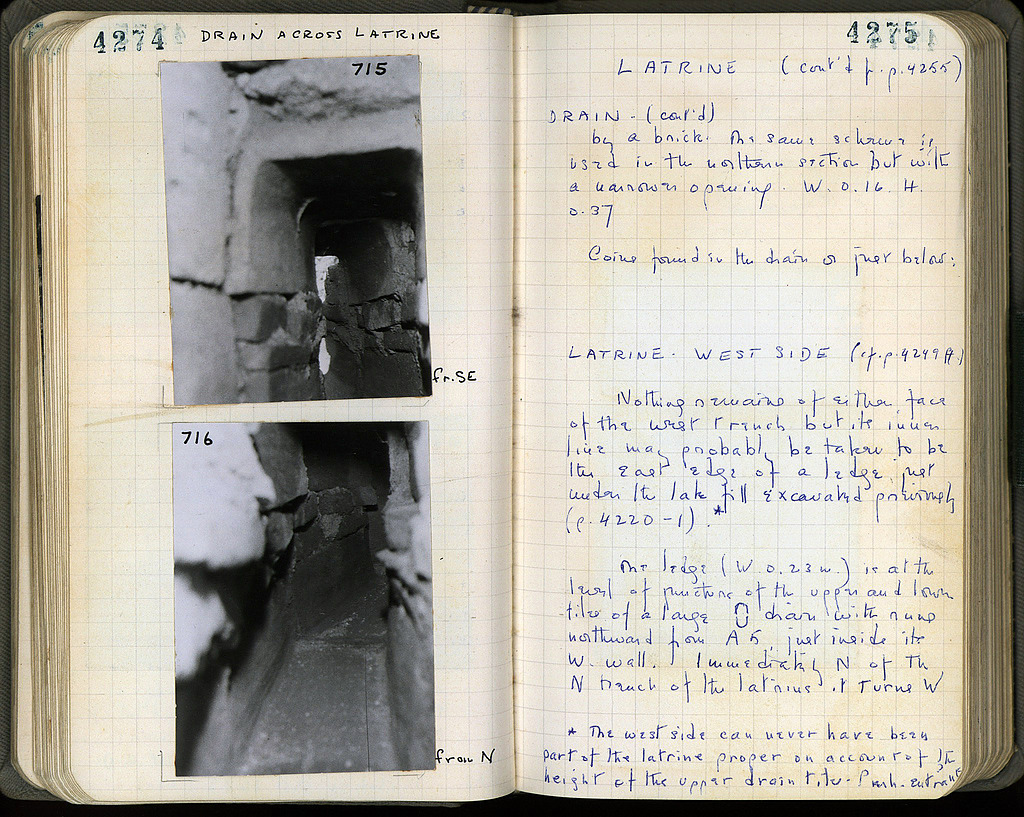 4274
DRAIN ACROSS LATRINE
715
fr. SE
716
from N
4275
LATRINE (cont'd f. p. 4255)
DRAIN - (cont'd)
by a brick. The same scheme is
used in the northern section but with
a narrower opening. W. 0.16. H.
0.37
Coins found in the drain or just below:
LATRINE. WEST SIDE (cf. p. 4249 ff.)
Nothing remains of either face
of the west trench but its inner
line may probably be taken to be
the east edge of a ledge just
under the late fill excavated previously
(p. 4220-1).*
The ledge (W. 0.23 m.) is at the
level of juncture of the upper and lower
tile of a large drain with runs
northward from A 5, just inside its
W. wall. Immediately N of the
N trench of the latrine it turns W
* The west side can never have been
part of the latrine proper on account of the
height of the upper drain tile.